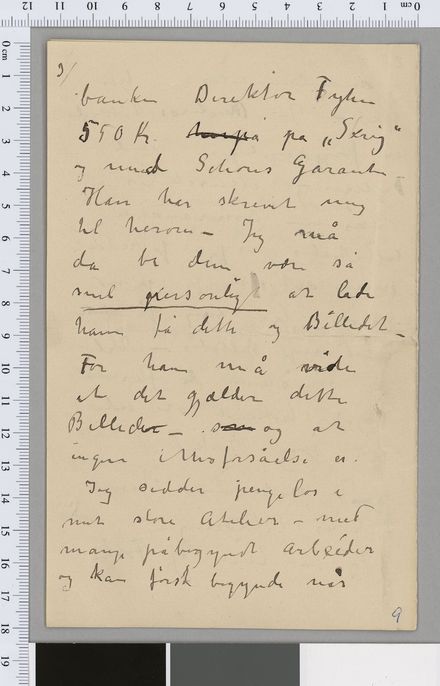 3/
banken Direktør Fyhn
550 Kr. herpå på „Skrig"
og mod Schous Garanti –
Han har skrevet mig
til herom – Jeg må
da be dem være så
snil personlig at lade
ham få dette og Billedet –
For han må vide
at det gjælder dette
Billede – som og at
ingen Misforståelse er.
Jeg sidder pengeløs i
mit store Atelier – med
mange påbegyndt Arbeider
og kan først begynde når
9
0 cm 1 2 3 4 5 6 7 8 9 10 11 12 13 14 15 16 17 18 19
12 11 10 9 8 7 6 5 4 3 2 1 cm 0